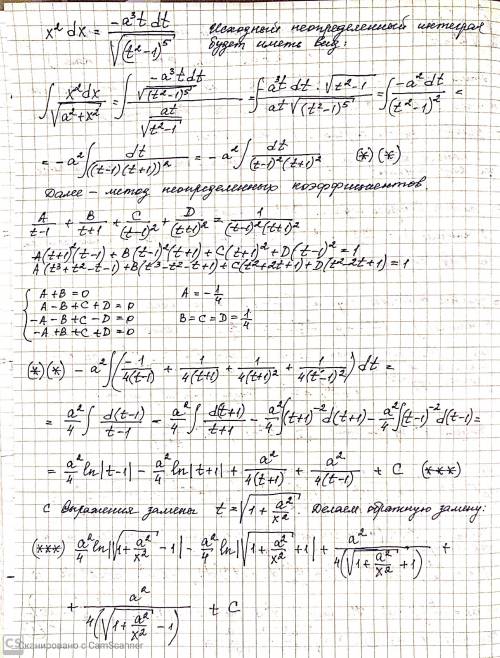 x² dx = -a³t dt / √(t²-1)⁵ Исходный неопределенный интеграл
будет иметь вид:
∫ x²dx / √(a²+x²) = ∫ (-a³t dt / √(t²-1)⁵) / (at / √(t²-1)) = ∫ a³t dt · √(t²-1) / (at √(t²-1)⁵) = ∫ -a² dt / (t²-1)² =
= -a² ∫ dt / ((t-1)(t+1))² = -a² ∫ dt / (t-1)²(t+1)² (*)(*)
Далее - метод неопределенных коэффициентов.
A/(t-1) + B/(t+1) + C/(t-1)² + D/(t+1)² = 1/((t-1)²(t+1)²)
A(t+1)²(t-1) + B(t-1)²(t+1) + C(t+1)² + D(t-1)² = 1
A(t³+t²-t-1) + B(t³-t²-t+1) + C(t²+2t+1) + D(t²-2t+1) = 1
A + B = 0 A = -1/4
A - B + C + D = 0
-A - B + C - D = 0 B = C = D = 1/4
-A + B + C + D = 0
(*)(*) - a² ∫ (-1/4(t-1) + 1/4(t+1) + 1/4(t+1)² + 1/4(t-1)²) dt =
= a²/4 ∫ d(t-1)/(t-1) - a²/4 ∫ d(t+1)/(t+1) - a²/4 ∫ (t+1)⁻² d(t+1) - a²/4 ∫ (t-1)⁻² d(t-1) =
= a²/4 ln|t-1| - a²/4 ln|t+1| + a²/4(t+1) + a²/4(t-1) + C (***)
С выражения замены t = √(1 + a²/x²). Делаем обратную замену:
(***) a²/4 ln|√(1 + a²/x²) - 1| - a²/4 ln|√(1 + a²/x²) + 1| + a² / 4(√(1 + a²/x²) + 1) +
+ a² / 4(√(1 + a²/x²) - 1) + C
CS Сканировано с CamScanner